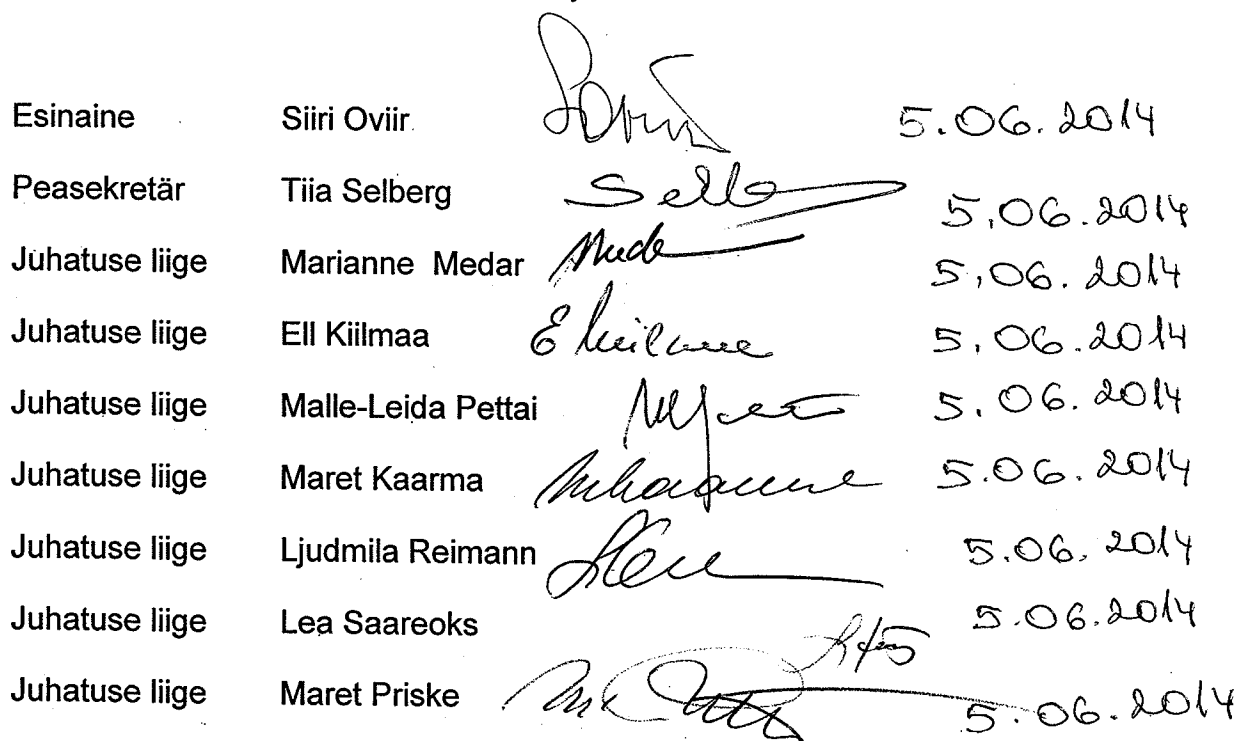 Esinaine Siiri Oviir 5.06.2014
Peasekretär Tiia Selberg Selb 5.06.2014
Juhatuse liige Marianne Medar 5.06.2014
Juhatuse liige Ell Kiilmaa 5.06.2014
Juhatuse liige Malle-Leida Pettai 5.06.2014
Juhatuse liige Maret Kaarma 5.06.2014
Juhatuse liige Ljudmila Reimann 5.06.2014
Juhatuse liige Lea Saareoks 5.06.2014
Juhatuse liige Maret Priske 5.06.2014